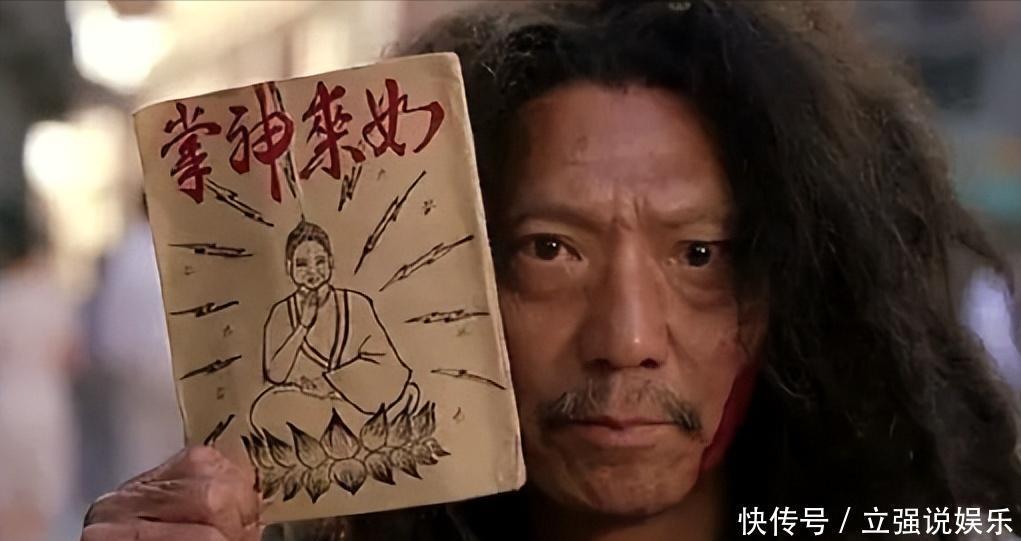 如來神掌
快传号 / 立强说娱乐